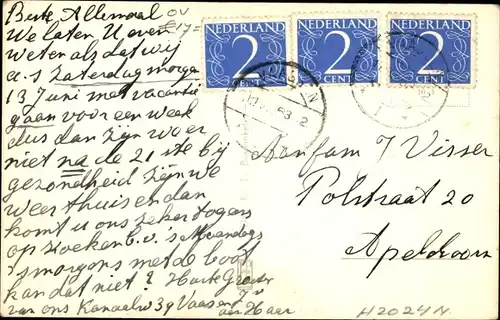 Beste Allemaal
We laten U even
weten als dat wij
a.s zaterdag morgen
13 Juni met vacantie
gaan voor een week
dus dan zijn we er
niet na de 21 ste bij
gezondheid zijn we
weer thuis en dan
komt u ons zeker dagens
op zoeken b.v. 's Maandags
's morgens met de boot
kan dat niet? Hart Groeten
van ons Kanaalw 39 Vaassen
NEDERLAND
2
CENT
NEDERLAND
2
CENT
NEDERLAND
2
CENT
Aan fam J Visser
Polstraat 20
Apeldoorn
H2024N